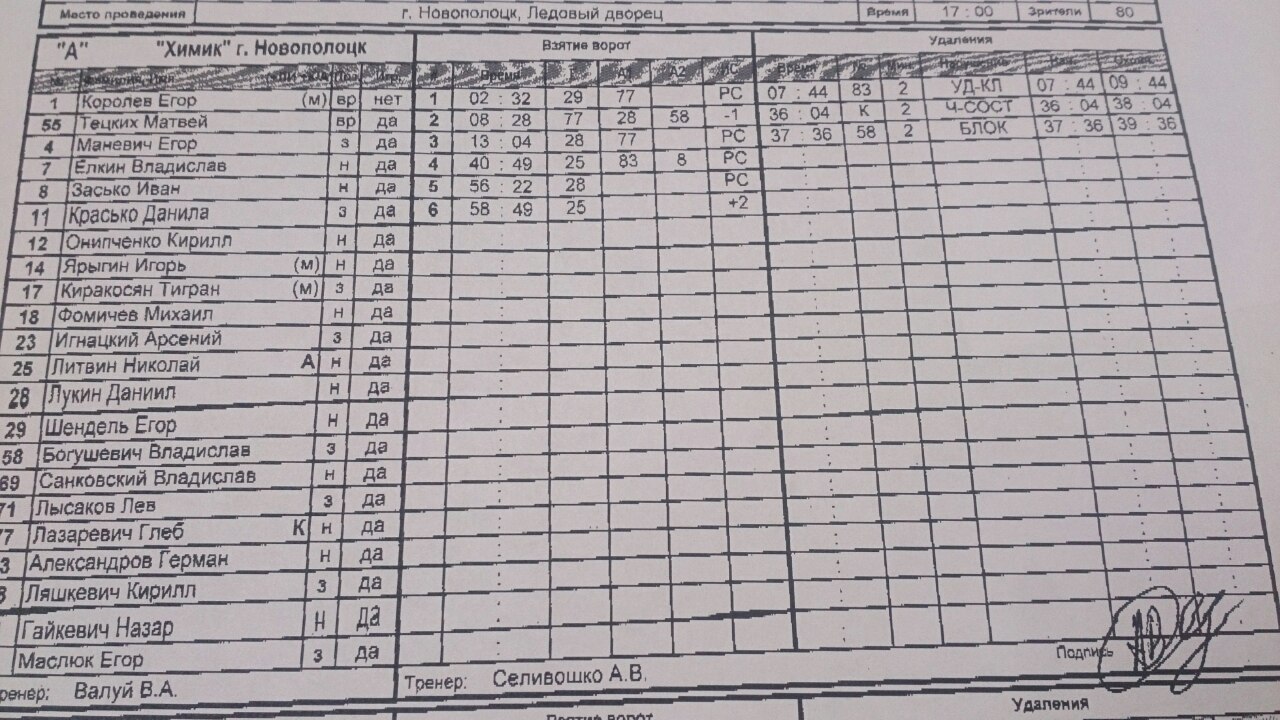 Место проведения г. Новополоцк, Ледовый дворец Время 17 : 00 Зрители 80
"А" "Химик" г. Новополоцк Взятие ворот Удаления
№ Фамилия, Имя Игр. # Время Г А1 А2 ИС Время № Мин
1 Королев Егор (м) вр нет 1 02 : 32 29 77 РС 07 : 44 83 2 УД-КЛ 07 : 44 09 : 44
55 Тецких Матвей вр да 2 08 : 28 77 28 58 -1 36 : 04 К 2 Ч-СОСТ 36 : 04 38 : 04
4 Маневич Егор з да 3 13 : 04 28 77 РС 37 : 36 58 2 БЛОК 37 : 36 39 : 36
7 Елкин Владислав н да 4 40 : 49 25 83 8 РС
8 Засько Иван н да 5 56 : 22 28 РС
11 Красько Данила з да 6 58 : 49 25 +2
12 Онипченко Кирилл н да
14 Ярыгин Игорь (м) н да
17 Киракосян Тигран (м) з да
18 Фомичев Михаил н да
23 Игнацкий Арсений з да
25 Литвин Николай А н да
28 Лукин Даниил н да
29 Шендель Егор н да
58 Богушевич Владислав з да
69 Санковский Владислав н да
71 Лысаков Лев з да
77 Лазаревич Глеб К н да
3 Александров Герман н да
Ляшкевич Кирилл з да
Гайкевич Назар н да
Маслюк Егор з да
Подпись
ренер: Валуй В.А. Тренер: Селивошко А.В.
Взятие ворот Удаления